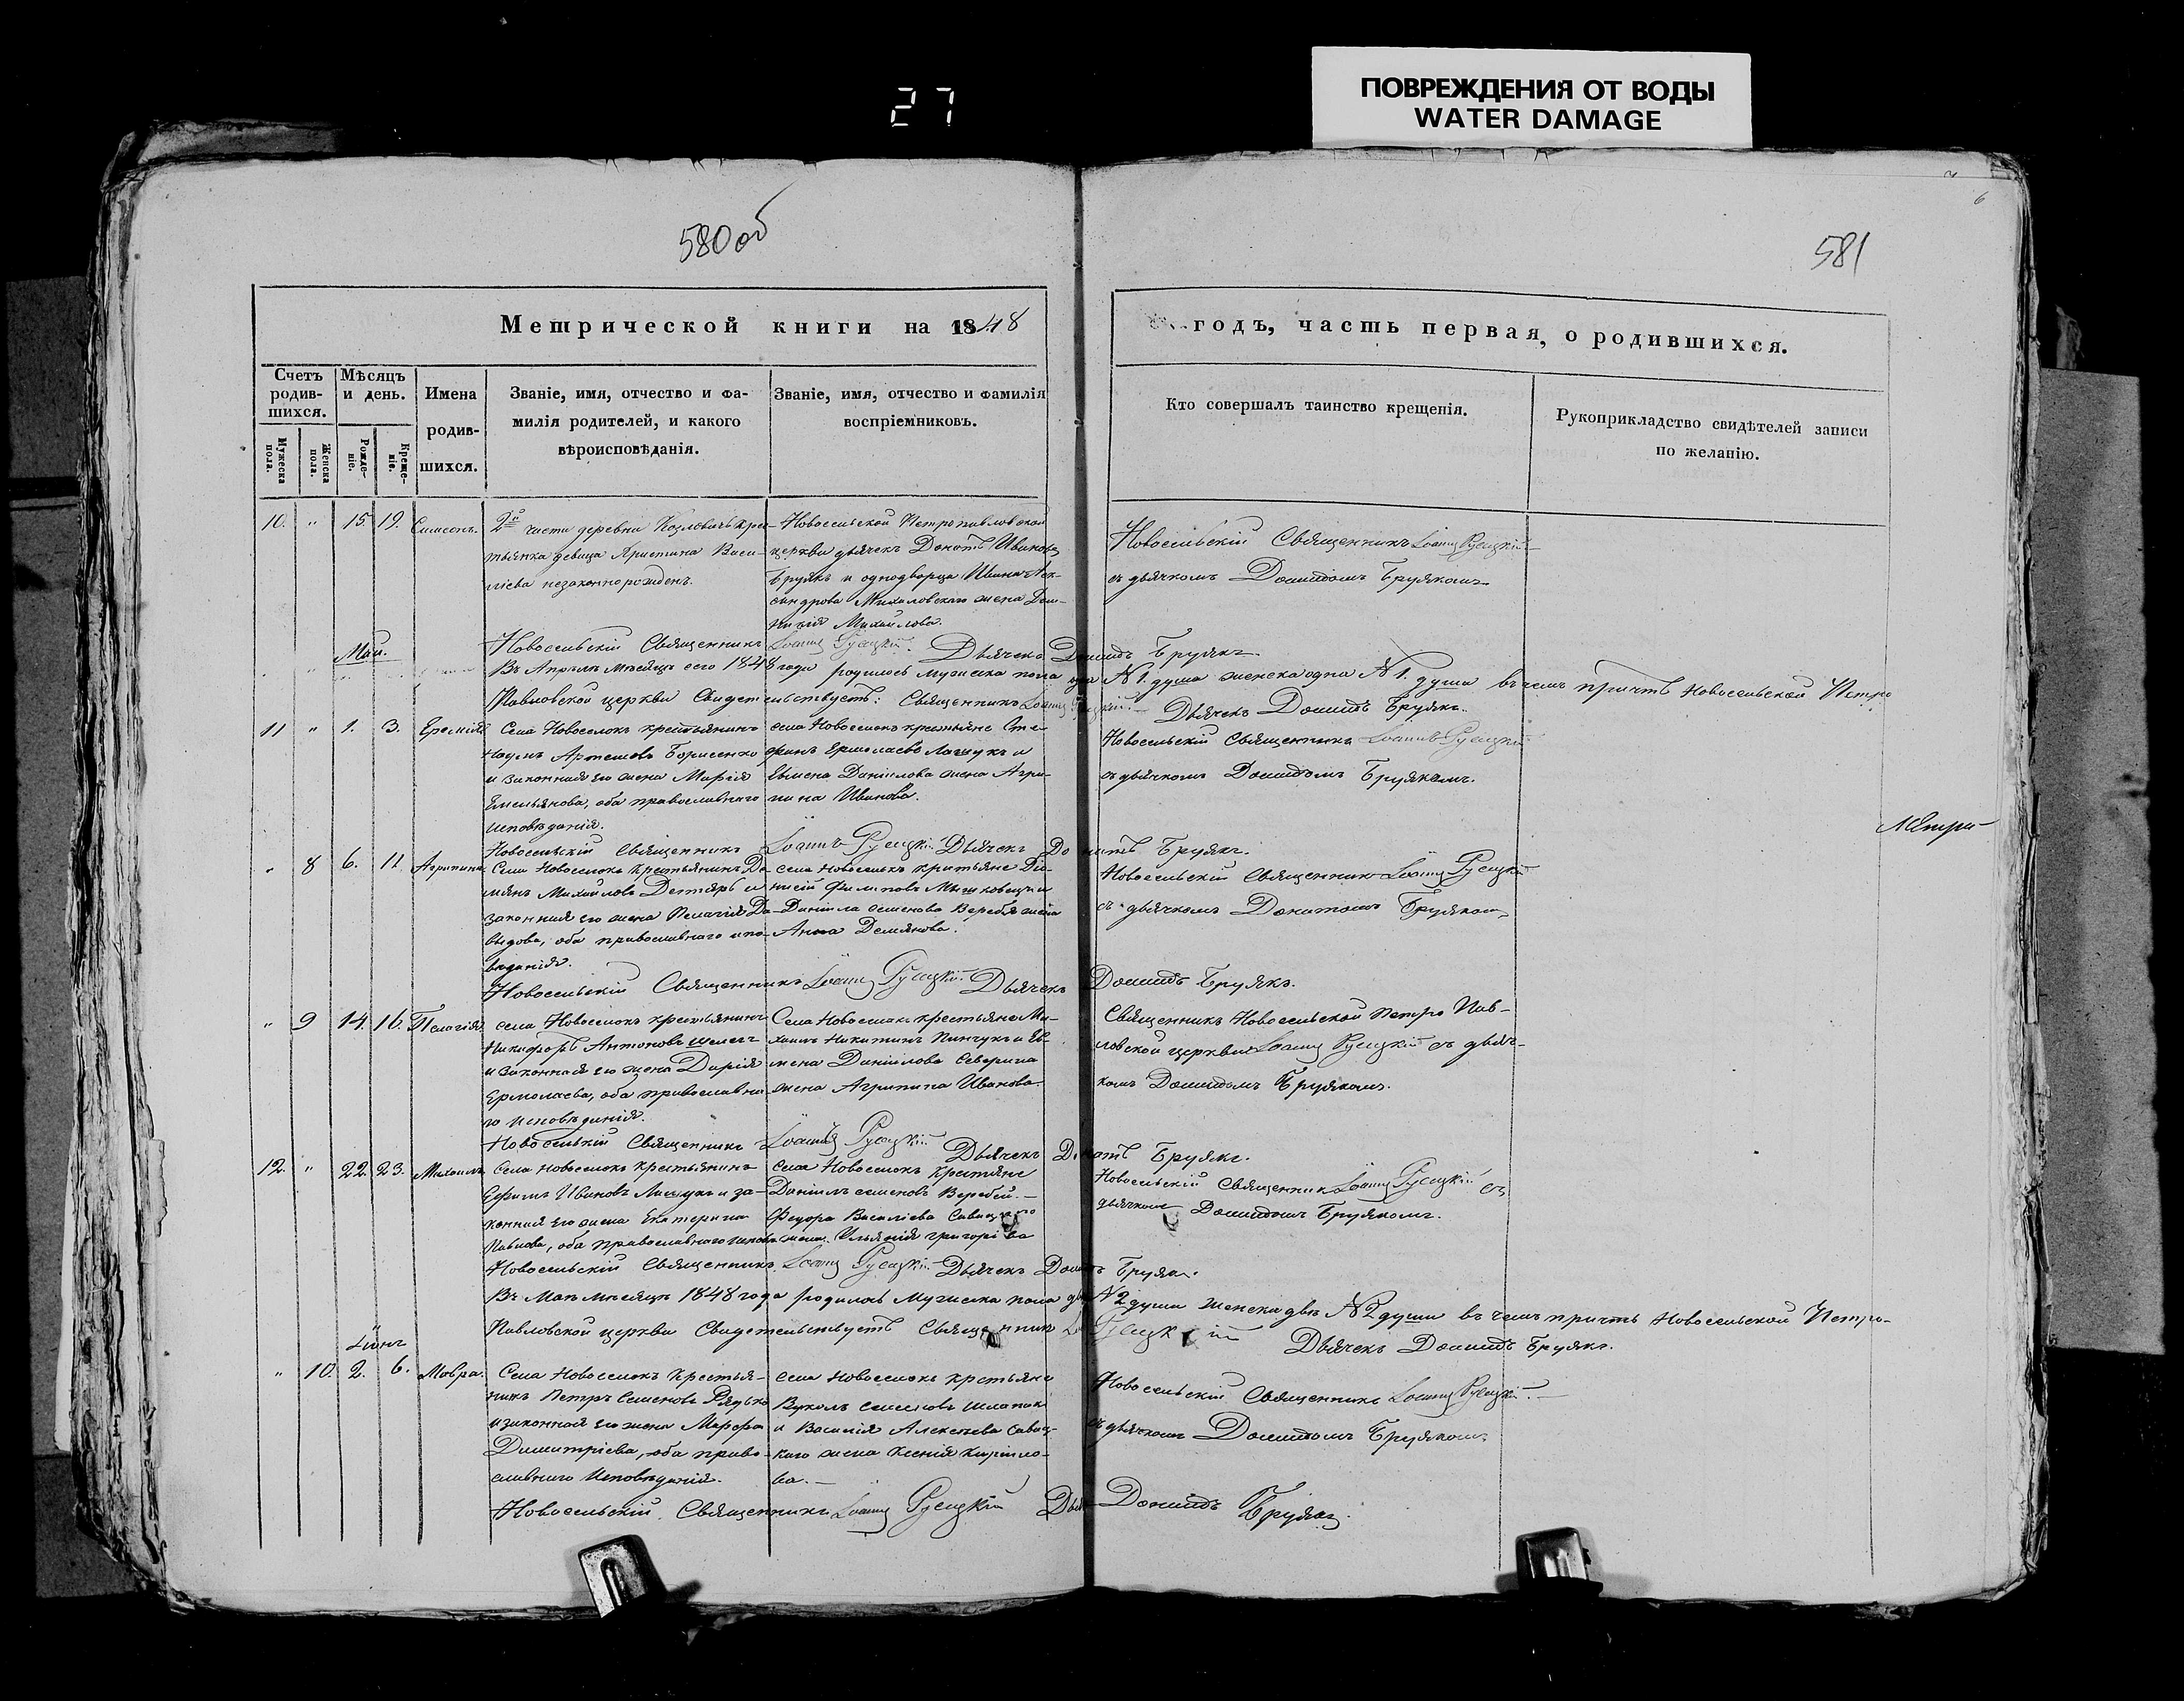 27
ПОВРЕЖДЕНИЯ ОТ ВОДЫ
WATER DAMAGE
580 об
581
6
Метрической книги на 1848
годъ, часть первая, о родившихся.
Счетъ родившихся.
Мужеска пола.
Женска пола.
Мѣсяцъ и день.
Рожденіе.
Крещеніе.
Имена родившихся.
Званіе, имя, отчество и фамилія родителей, и какого вѣроисповѣданія.
Званіе, имя, отчество и фамилія воспріемниковъ.
Кто совершалъ таинство крещенія.
Рукоприкладство свидѣтелей записи по желанію.
10. " 15 19. Симеонъ.
2й части деревни Козловичь крес-
тьянка девица Христина Васи-
лiева незаконнорожденъ.
Новосельской Петропавловской
церкви дьячекъ Донатъ Ивановъ
Брунякъ и однодворца Ивана Лек-
сандрова Михаловскаго жена Дом-
никія Михайлова.
Новосельскій Священникъ Іоаннъ Русецкій
съ дьячкомъ Донатомъ Бруякомъ
Новосельскій Священникъ Іоаннъ Русецкій. Дьячекъ Донатъ Бруякъ
Май.
Въ Апрѣлѣ мѣсяцѣ сего 1848 года родилось мужеска пола одна №1. душа женска одна №1. душа въ чемъ причтъ Новосельской Петро
Павловской церкви Свидетельствуетъ: Священникъ Іоаннъ Русецкій. Дьячекъ Донатъ Бруякъ.
11 " 1. 3. Еремій
Села Новоселокъ крестьянинъ
Наумъ Артемовъ Борисенко
и законная его жена Марія
Емельянова, оба православнаго
исповѣданія.
села Новоселокъ крестьяне Сте-
фанъ Ермолаевъ Лащукъ и
Евмена Даніилова жена Агри-
пина Иванова.
Новосельскій Священникъ Іоаннъ Русецкій
съ дьячкомъ Донатомъ Бруякомъ.
Новосельскій Священникъ Іоаннъ Русецкій Дьячекъ Донатъ Бруякъ.
Метри-
" 8 6. 11. Агрипина
Села Новоселокъ крестьянинъ Да-
міянъ Михайловъ Дегтяръ и
законная его жена Пелагія Да-
выдова, оба православнаго испо-
ведания.
села Новоселокъ крестьяне Діо-
нисій Филиповъ Мышковецъ и
Даніила семенова Веребья жена
Анна Демянова.
Новосельскій Священникъ Іоаннъ Русецкій
съ дьячкомъ Донатомъ Бруякомъ
Новосельскій Священникъ Іоаннъ Русецкій Дьячекъ Донатъ Бруякъ.
" 9 14. 16. Пелагія
села Новоселокъ крестьянинъ
Никифоръ Антоновъ
и законная его жена Дарія
Ермолаева, оба православна-
го исповѣданія.
Села Новоселокъ крестьяне Ми-
хаилъ Никитинъ Пинчукъ и Ев-
мена Даніилова Северина
жена Агрипина Иванова.
Священникъ Новосельской Петро Пав-
ловской церкви Іоаннъ Русецкій съ дьяч-
комъ Донатомъ Бруякомъ.
Новосельскій Священникъ Іоаннъ Русецкій Дьячекъ Донатъ Бруякъ.
12. " 22. 23. Михаилъ
Села Новоселокъ крестьянинъ
Ефимъ Ивановъ Лащукъ и за-
конная его жена Екатерина
Павлова, оба православнаго испов.
села Новоселокъ крестьяне
Даніилъ семеновъ Веребей.—
Федора Василіева Савицкаго
жена Ульянія григоріева
Новосельскій Священникъ Іоаннъ Русецкій съ
дьячкомъ Донатомъ Бруякомъ.
Новосельскій Священникъ Іоаннъ Русецкій Дьячекъ Донатъ Бруякъ.
Въ Маѣ мѣсяцѣ 1848 года родилось мужеска пола двѣ №2 души женска двѣ №2 души въ чемъ причтъ Новосельской Петро-
Павловской церкви Свидетельствуетъ Священникъ Русецкій Дьячекъ Донатъ Бруякъ.
Іюнь
" 10. 2. 6. Мавра.
Села Новоселокъ Крестья-
нинъ Петръ Семеновъ Рядько
и законная его жена Марфа
Димитріева, оба право-
славнаго Исповѣданія.
села Новоселокъ крестьяне
Вуколъ семеновъ Шлапак
и Василія Алексѣева Савиц-
каго жена Ксенія Кирило-
ва.—
Новосельскій Священникъ Іоаннъ Русецкій.—
съ дьячкомъ Донатомъ Бруякомъ
Новосельскій Священникъ Іоаннъ Русецкій Дья Донатъ Бруякъ.